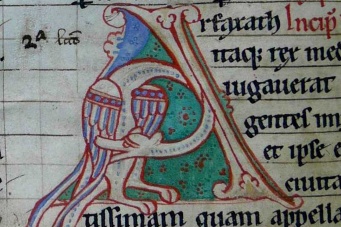 2ª lcĉo
Arfaxath Incip
itaq; rex med
iugauerat
gentes mu
et ipse e
ciuita
tissimam quam appella